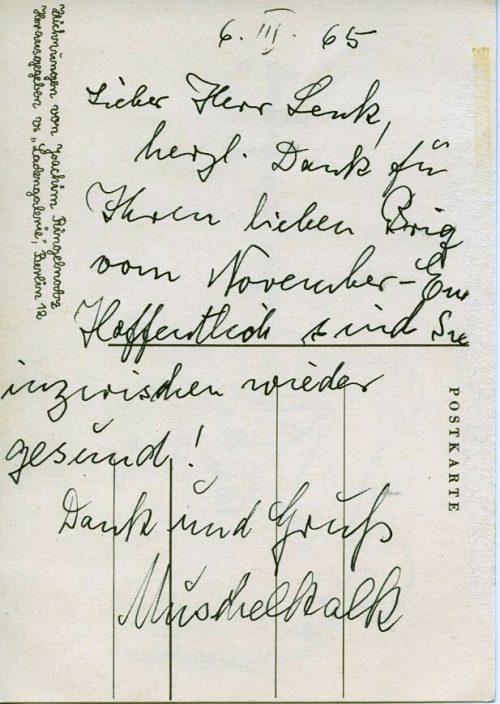 6. III. 65
Lieber Herr Lenk,
herzl. Dank für
Ihren lieben Brief
vom November-En
Hoffentlich sind Sie
inzwischen wieder
gesund!
Dank und Gruß
Muschelkalk
Zeichnungen von Joachim Ringelnatz
Herausgegeben v. "Ladengalerie", Berlin 12
POSTKARTE